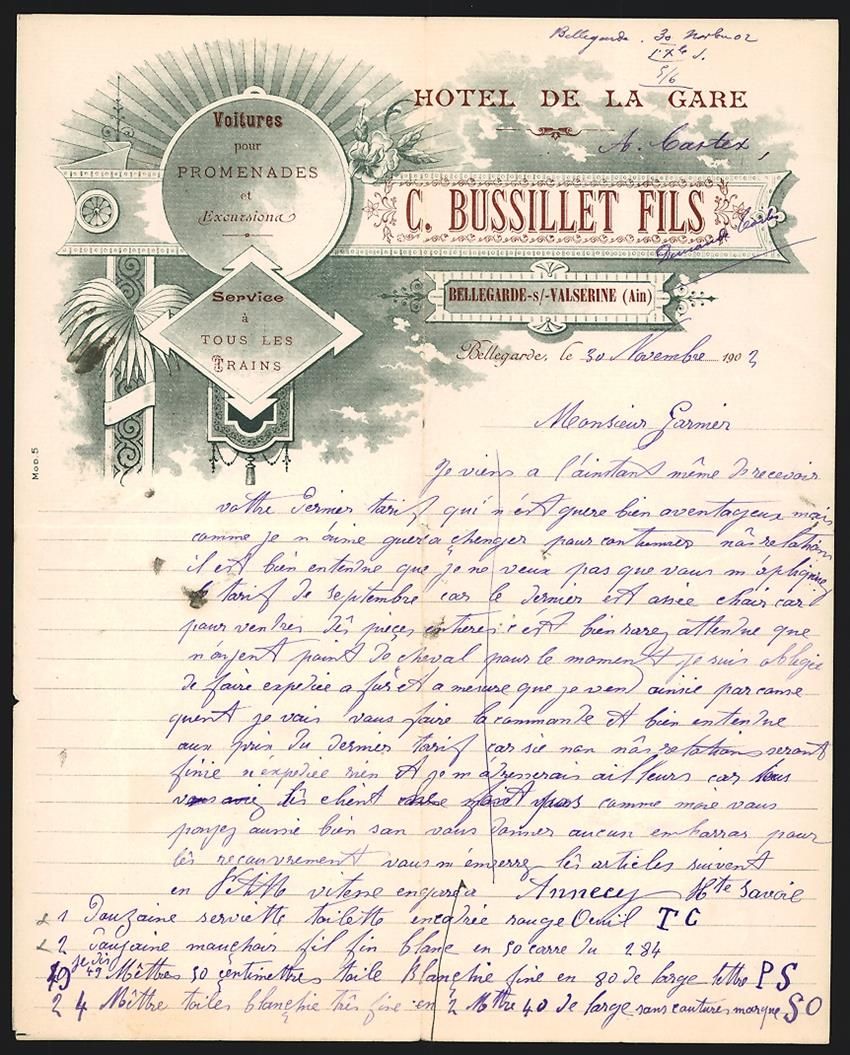 Bellegarde. 30 Novbre 02
5/6
HOTEL DE LA GARE
A. Castex,
Voitures
pour
PROMENADES
et
Excursions
C. BUSSILLET FILS
Service
à
TOUS LES
TRAINS
BELLEGARDE-s/-VALSERINE (Ain)
Bellegarde, le 30 Novembre 1902
Monsieur Garnier
Moo.5
Je viens a l'ainstant même de recevoir
vottre dernier tarif qui n'est quere bien aventageux mais
comme je n'aime quere a changer pour continuer nôs relations
il est bien entendue que je ne veux pas que vous m'apliquiez
le tarif de septembre car le dernier est assee chair car
pour vendres dês pieces entieres c'est bien rare attendue que
n'aiyent point de cheval pour le moment je suis obligée
de faire expediee a fûr et a mesure que je vend ainsie par conse
quent je vais vous faire la commande et bien entendue
aux prix du dernier tarif car sie non nôs relations seront
finie n'expediee rien et je m'adresserais ailleurs car
lês client comme moie vous
payez aussie bien san vous donner aucun embarras pour
lês recouvrement vous m'enverrez lês articles suivent
en vitesse engare a Annecy Hte Savoie
1 Douzaine serviette toilette encadrée rouge Oeuil T C
2 Douzaine mouchoir fil fin blanc en 50 carre du 284
je dis
49 49 Mêttres 50 çentimettres toile Blançhie fine en 80 de large lettre P S
2 4 Mêttre toiles blançhie três fine en 2 Mttre 40 de large sans coutures marque S O